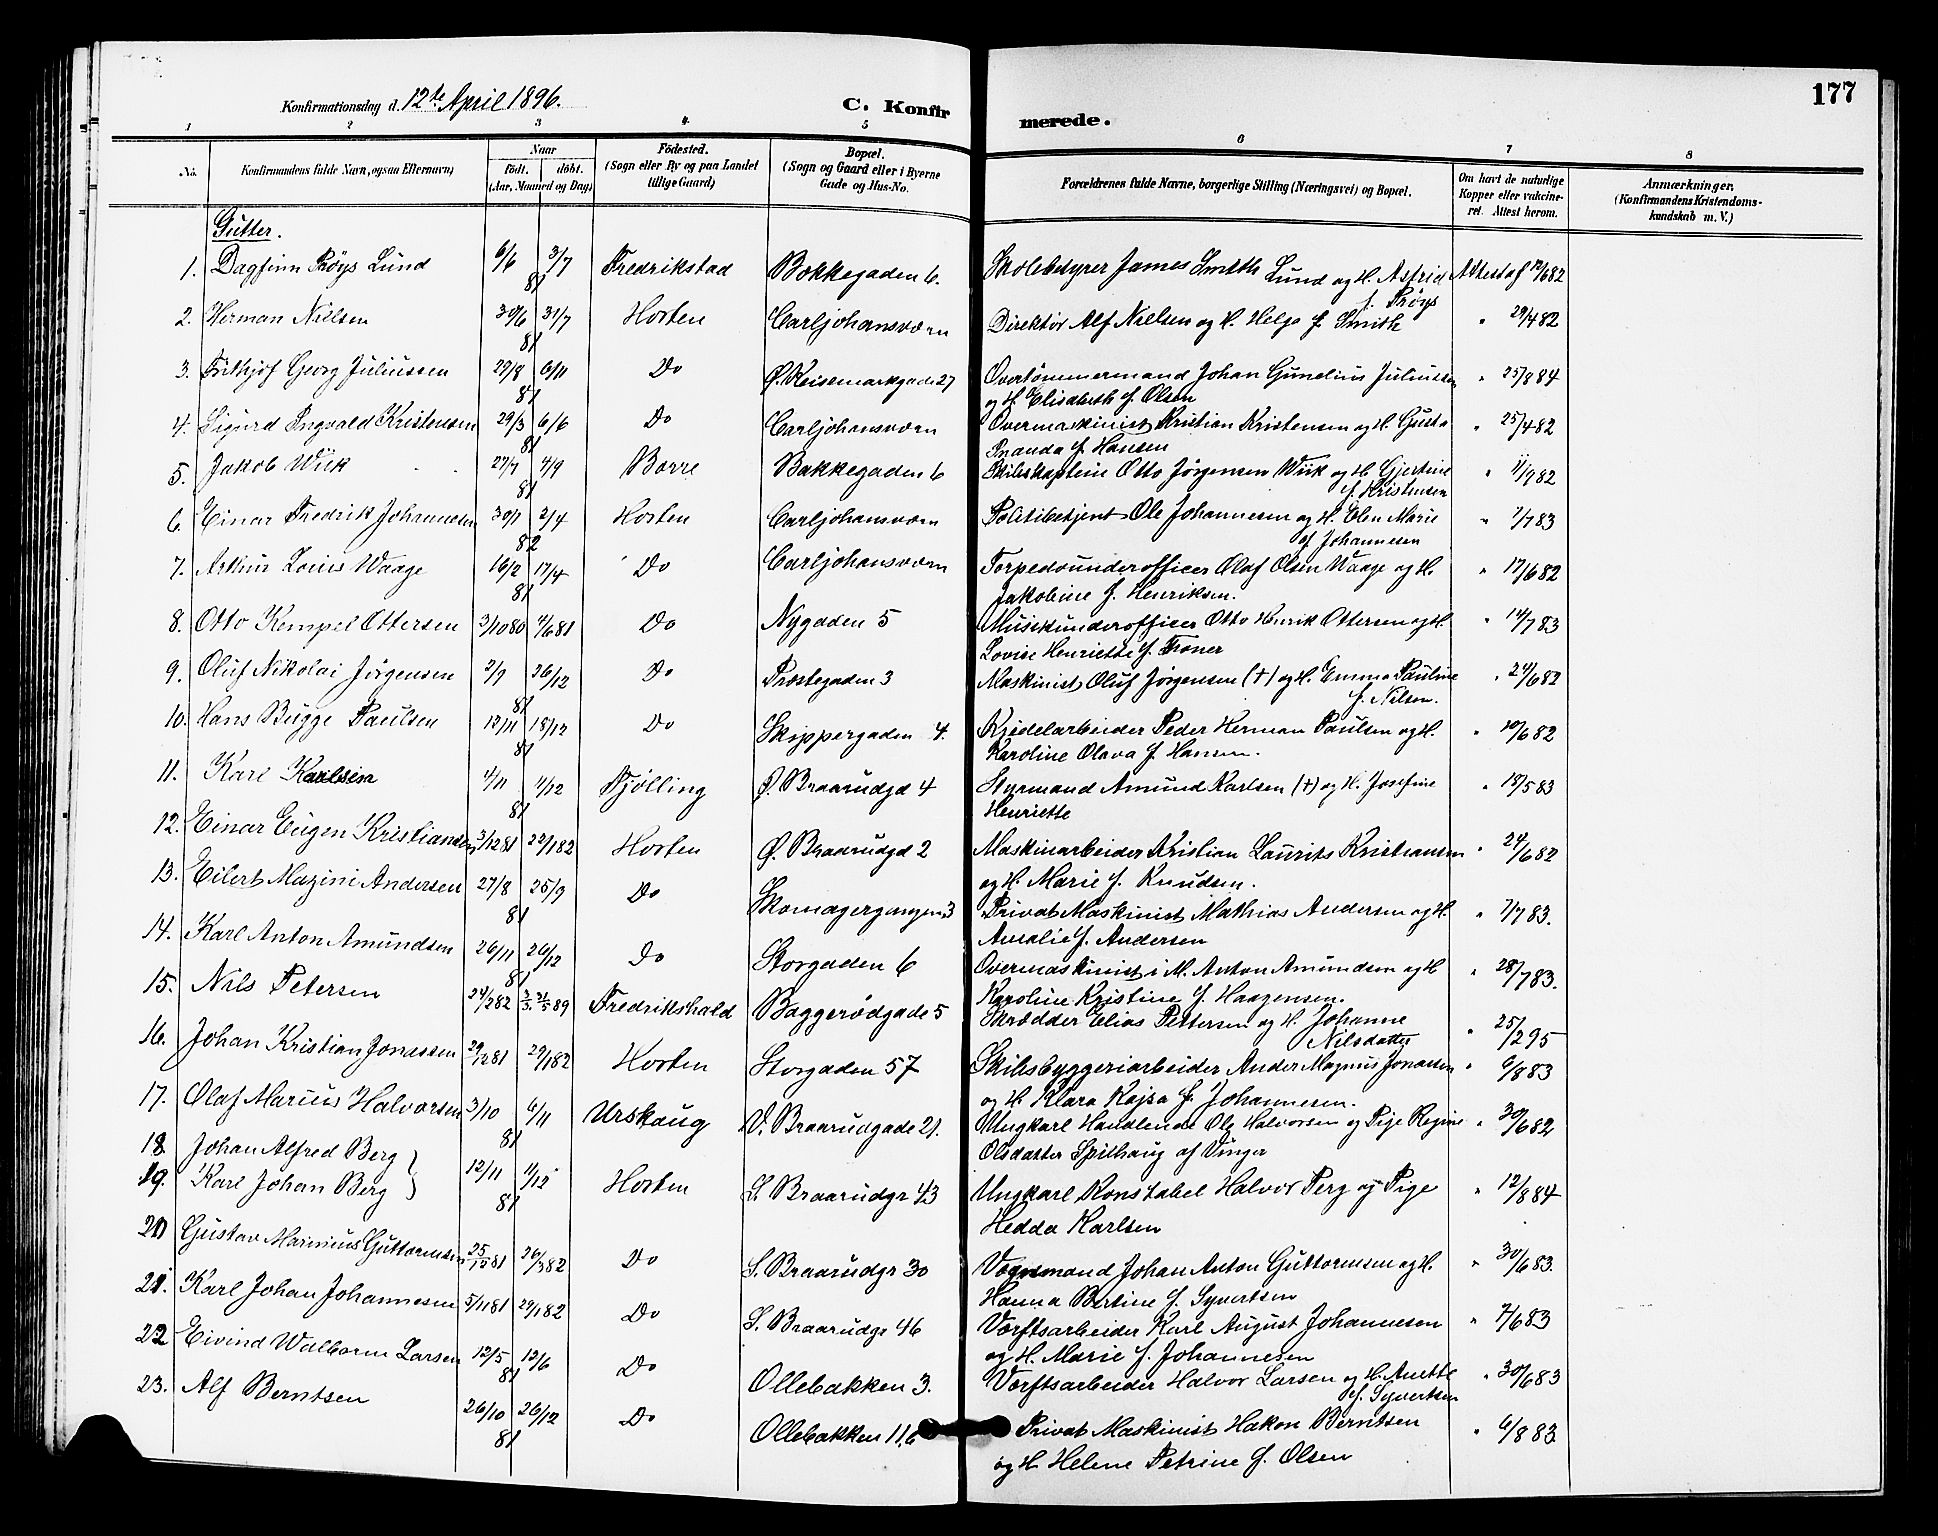 177
Konfirmationsdag d. 12te April 1896.
C. Konfirmerede.
1 2 3 4 5 6 7 8
No. Konfirmandens fulde Navn, ogsaa Efternavn) Naar født. døbt. (Aar, Maaned og Dag) Fødested. (Sogn eller By og paa Landet tillige Gaard) Bopæl. (Sogn og Gaard eller i Byerne Gade og Hus-No. Forældrenes fulde Navne, borgerlige Stilling (Næringsvei) og Bopæl. Om havt de naturlige Kopper eller vakcineret. Attest herom. Anmærkninger. (Konfirmandens Kristendomskundskab m. V.)
Gutter.
1. Dagfinn Prøys Lund 6/6 3/7 81 Fredrikstad Bakkegaden 6. Skolebestyrer James Smith Lund og H. Astrid f. Prøys Attest af 12/6 82
2. Herman Nielsen 30/6 31/7 81 Horten Carljohansværn Direktør Alf Nielsen og H. Helga f. Smith " 29/4 82
3. Fritkjof Georg Juliussen 29/8 6/11 81 Do Ø. Keisemarkgade 27 Overtømmermand Johan Gunelius Juliussen
og H. Elisabeth f. Olsen " 25/8 84
4. Sigurd Ingvald Kristensen 29/3 6/6 81 Do Carljohansværn Overmaskinist Kristian Kristensen og H. Gusta
Pranda f. Hansen " 25/4 82
5. Jakob Wiik 27/7 4/9 81 Borre Bakkegaden 6 Skibskaptein Otto Jørgensen Wiik og H. Gjertine
f. Kristensen " 11/9 82
6. Einar Fredrik Johannesen 30/1 2/4 82 Horten Carljohansværn Politibetjent Ole Johannesen og H. Elen Marie
f. Johannesen " 7/7 83
7. Arthur Louis Waage 16/2 17/4 81 Do Carljohansværn Torpedounderofficer Olaf Olsen Waage og H.
Jakobine f. Henriksen. " 17/6 82
8. Otto Kempel Ottersen 3/10 80 4/6 81 Do Nygaden 5 Musikunderofficer Otto Henrik Ottersen og H.
Lovise Henriette f. Troner " 14/7 83
9. Oluf Nikolai Jørgensen 2/9 26/12 81 Do Præstegaden 3 Maskinist Oluf Jørgensen (+) og H. Emma Pauline
f. Nilsen. " 24/6 82
10. Hans Bugge Paulsen 12/11 18/12 81 Do Skippergaden 4. Kjedelarbeider Peder Herman Paulsen og H.
Karoline Olava f. Hansen. " 10/6 82
11. Karl Karlsen 4/11 4/12 81 Tjølling Ø. Braarudgd 4 Styrmand Amund Karlsen (+) og H. Josefine
Henriette " 18/5 83
12. Einar Eugen Kristiansen 3/12 81 22/1 82 Horten Ø. Braarudgd 2 Maskinarbeider Kristian Laurits Kristiansen
og H. Marie f. Knudsen. " 24/6 82
13. Eilert Magini Andersen 27/8 25/9 81 Do Skomagergangen 3 Privat Maskinist Mathias Andersen og H.
Amalie f. Andersen " 7/7 83.
14. Karl Anton Amundsen 26/11 26/12 81 Do Storgaden 6 Overmaskinist i M. Anton Amundsen og H
Karoline Kristine f. Haagensen. " 28/7 83.
15. Nils Petersen 24/2 82 89 Fredrikshald Baggerødgade 5 Skrædder Elias Pettersen og H. Johanne
Nilsdatter " 25/2 95
16. Johan Kristian Jonassen 29/12 81 29/1 82 Horten Storgaden 57 Skibsbyggeriarbeider Ander Magnus Jonassen
og H. Klara Kajsa f. Johannesen. " 6/8 83
17. Olaf Marius Halvorsen 3/10 6/11 81 Urskaug V. Braarudgade 21. Ungkarl Handlende Ole Halvorsen og Pige Regine
Olsdatter Spilhaug af Vinger " 30/6 82
18. Johan Alfred Berg }
19. Karl Johan Berg } 12/11 11/12 81 Horten L. Braarudgr 43 Ungkarl Konstabel Halvor Berg og Pige
Hedda Karlsen " 12/8 84
20 Gustav Marinius Guttormsen 25/12 81 26/3 82 Do S. Braarudgr 30 Vognmand Johan Anton Guttormsen og H.
Hanna Bertine f. Syvertsen " 30/6 83.
21. Karl Johan Johannesen 5/11 81 29/1 82 Do S. Braarudgr 46 Værftsarbeider Karl August Johannesen
og H. Marie f. Johannesen " 7/6 83
22 Eivind Walborn Larsen 12/5 12/6 81 Do Ollebakken 3. Værftsarbeider Halvor Larsen og H. Anette
f. Syvertsen " 30/6 83
23. Alf Berntsen 26/10 26/12 81 Do Ollebakken 11,6 Privat Maskinist Hakon Berntsen
og H Helene Petrine f. Olsen " 6/8 83.